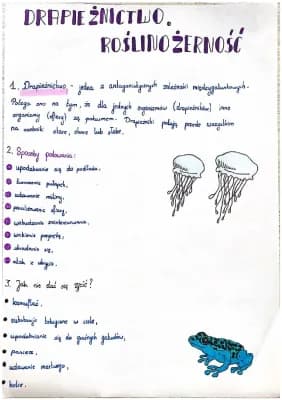 DRAPIEŻNICTWO.
ROŚLINOŻERNOŚĆ
1. Drapieżnictwo - jedna z antagonistycznych zależności międzygatunkowych.
Polega ono na tym, że dla jednych organizmów (drapieżników) inne
organizmy (ofiary) są pokarmem. Drapieżniki polują przede wszystkim
na osobniki stare, chore lub słabe.
2. Sposoby polowania:
upodabnianie się do podłoża,
tworzenie pułapek,
udawanie rośliny,
paraliżowanie ofiary,
wzbudzanie zainteresowania,
wielkimi pogonię,
skradanie się,
atak z ukrycia.
3. Jak nie dać się zjeść?
kamuflaż,
substancje toksyczne w ciele,
upodabnianie się do groźnych gatunków,
pancerz,
udawanie martwego,
kolor.